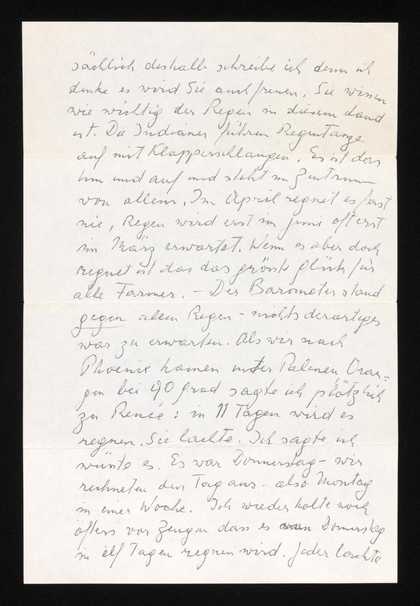 sächlich deshalb schreibe ich denn ich
denke es wird Sie auch freuen. Sie wissen
wie wichtig der Regen in diesem Land
ist. Die Indianer führen Regentänze
auf mit Klapperschlangen. Es ist das
um und auf und steht im Zentrum
von allem. Im April regnet es fast
nie, Regen wird erst im Juni oft erst
im März erwartet. Wenn es aber doch
regnet ist das das grösste Glück für
alle Farmer. – Der Barometer stand
gegen allem Regen – nichts derartiges
war zu erwarten. Als wir nach
Phoenix kamen unter Palmen Oran-
gen bei 90 Grad sagte ich plötzlich
zu Renée: in 11 Tagen wird es
regnen. Sie lachte. Ich sagte ich
wüsste es. Es war Donnerstag – wir
rechneten den Tag aus – also Montag
in einer Woche. Ich wiederholte noch
öfters vor Zeugen dass es Donnerstag
in elf Tagen regnen wird. Jeder lachte